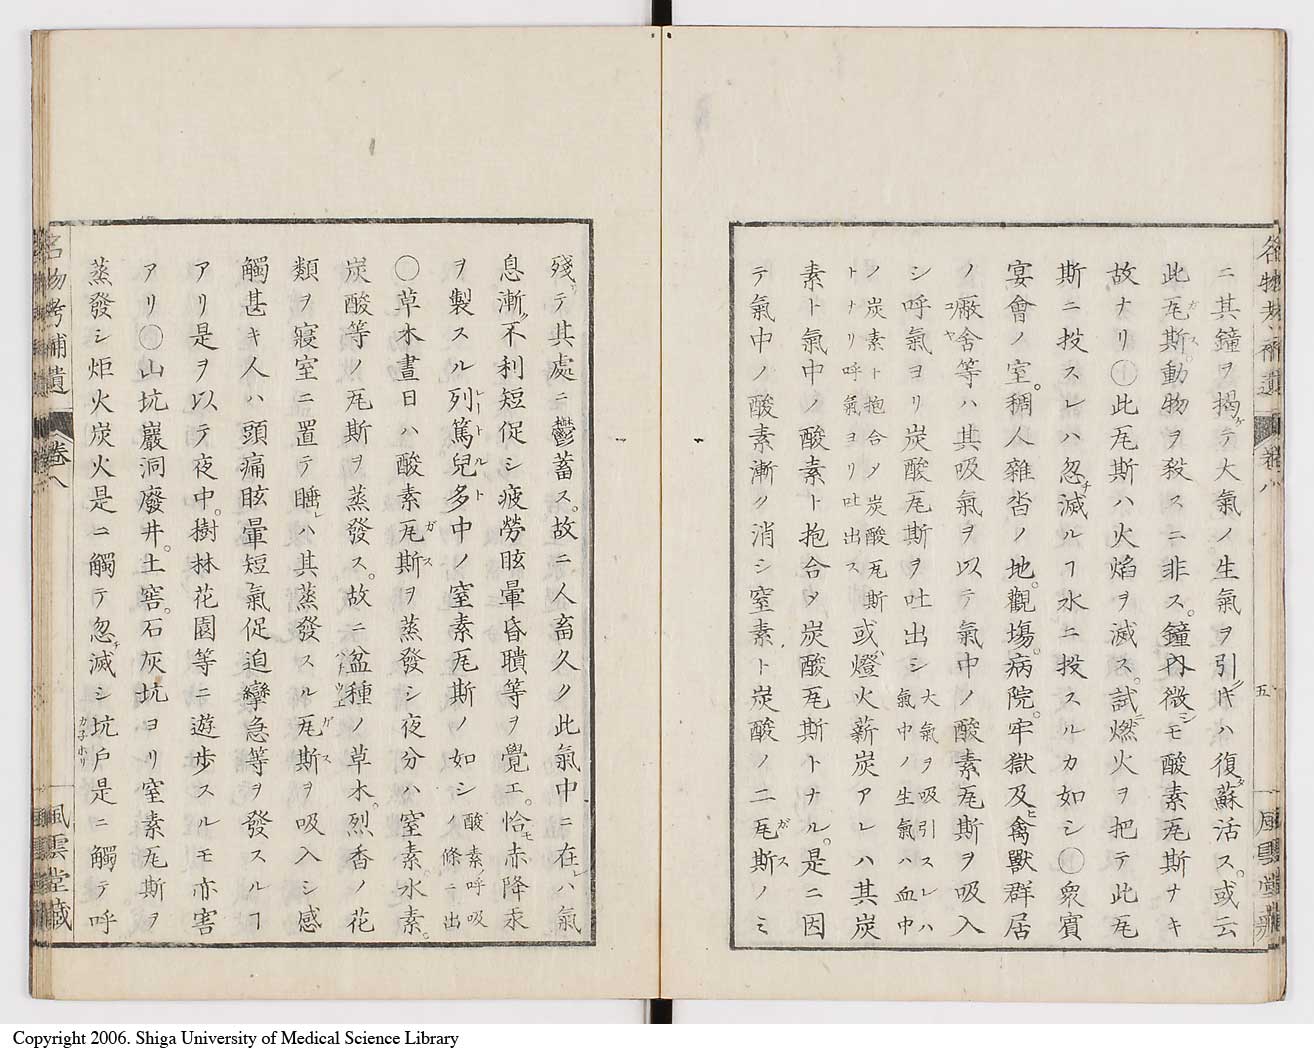 名物考補遺 卷八 五 風雲堂藏
ニ其鐘ヲ揭ケテ大氣ノ生氣ヲ引シムレハ復タ蘇活ス。或云
此瓦斯動物ヲ殺スニ非ス。鐘內微シモ酸素瓦斯ナキ
故ナリ○此瓦斯ハ火焰ヲ滅ス。試ニ燃火ヲ把テ此瓦
斯ニ投スレハ忽チ滅ルヿ水ニ投スルカ如シ○衆賓
宴會ノ室。稠人雜沓ノ地。觀場。病院。牢獄及ヒ禽獸群居
ノ廠舍等ハ其吸氣ヲ以テ氣中ノ酸素瓦斯ヲ吸入
シ呼氣ヨリ炭酸瓦斯ヲ吐出シ大氣ヲ吸引スレハ氣中ノ生氣ハ血中
ノ炭素ト抱合メ炭酸瓦斯トナリ呼氣ヨリ吐出ス或ハ燈火薪炭アレハ其炭
素ト氣中ノ酸素ト抱合メ炭酸瓦斯トナル。是ニ因
テ氣中ノ酸素漸ク消シ窒素ト炭酸ノ二瓦斯ノミ
殘リテ其處ニ鬱蓄ス。故ニ人畜久ク此氣中ニ在レハ氣
息漸ク不利短促シ疲勞眩暈昏聵等ヲ覺エ。恰モ赤降汞
ヲ製スル列篤兒多中ノ窒素瓦斯ノ如シ酸素ノ呼吸ノ條ニ出
○草木晝日ハ酸素瓦斯ヲ蒸發シ夜分ハ窒素。水素。
炭酸等ノ瓦斯ヲ蒸發ス。故ニ盆種ノ草木。烈香ノ花
類ヲ寢室ニ置テ睡レハ其蒸發スル瓦斯ヲ吸入シ感
觸甚キ人ハ頭痛眩暈短氣促迫攣急等ヲ發スルヿ
アリ是ヲ以テ夜中。樹林花園等ニ遊步スルモ亦害
アリ○山坑巖洞廢井。土窖。石灰坑ヨリ窒素瓦斯ヲ
蒸發シ炬火炭火是ニ觸テ忽チ滅シ坑戶是ニ觸テ呼
名物考補遺 卷八 風雲堂藏
Copyright 2006. Shiga University of Medical Science Library